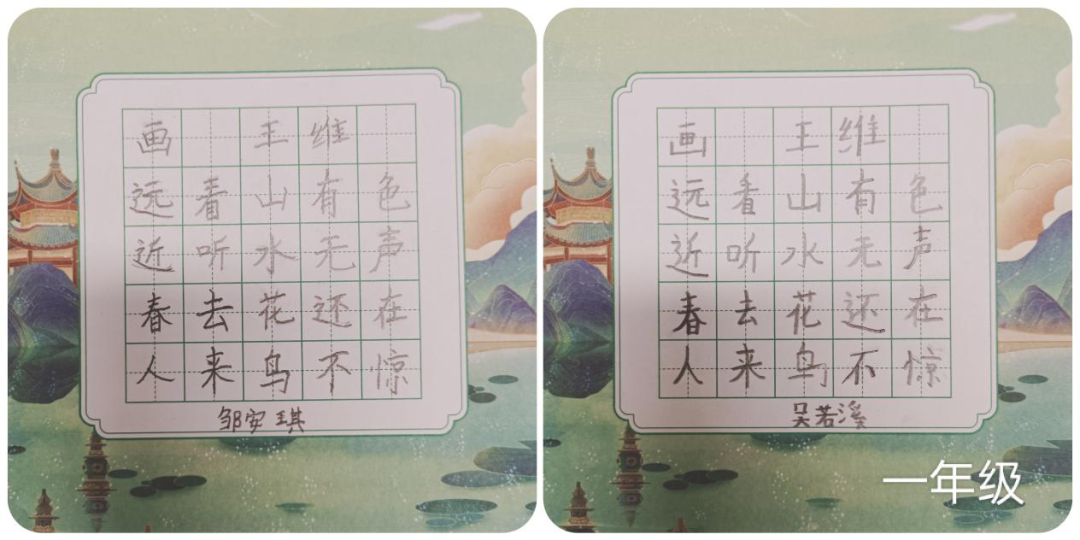 画 王维
远看山有色
近听水无声
春去花还在
人来鸟不惊
邹安琪
画 王维
远看山有色
近听水无声
春去花还在
人来鸟不惊
吴若溪
一年级